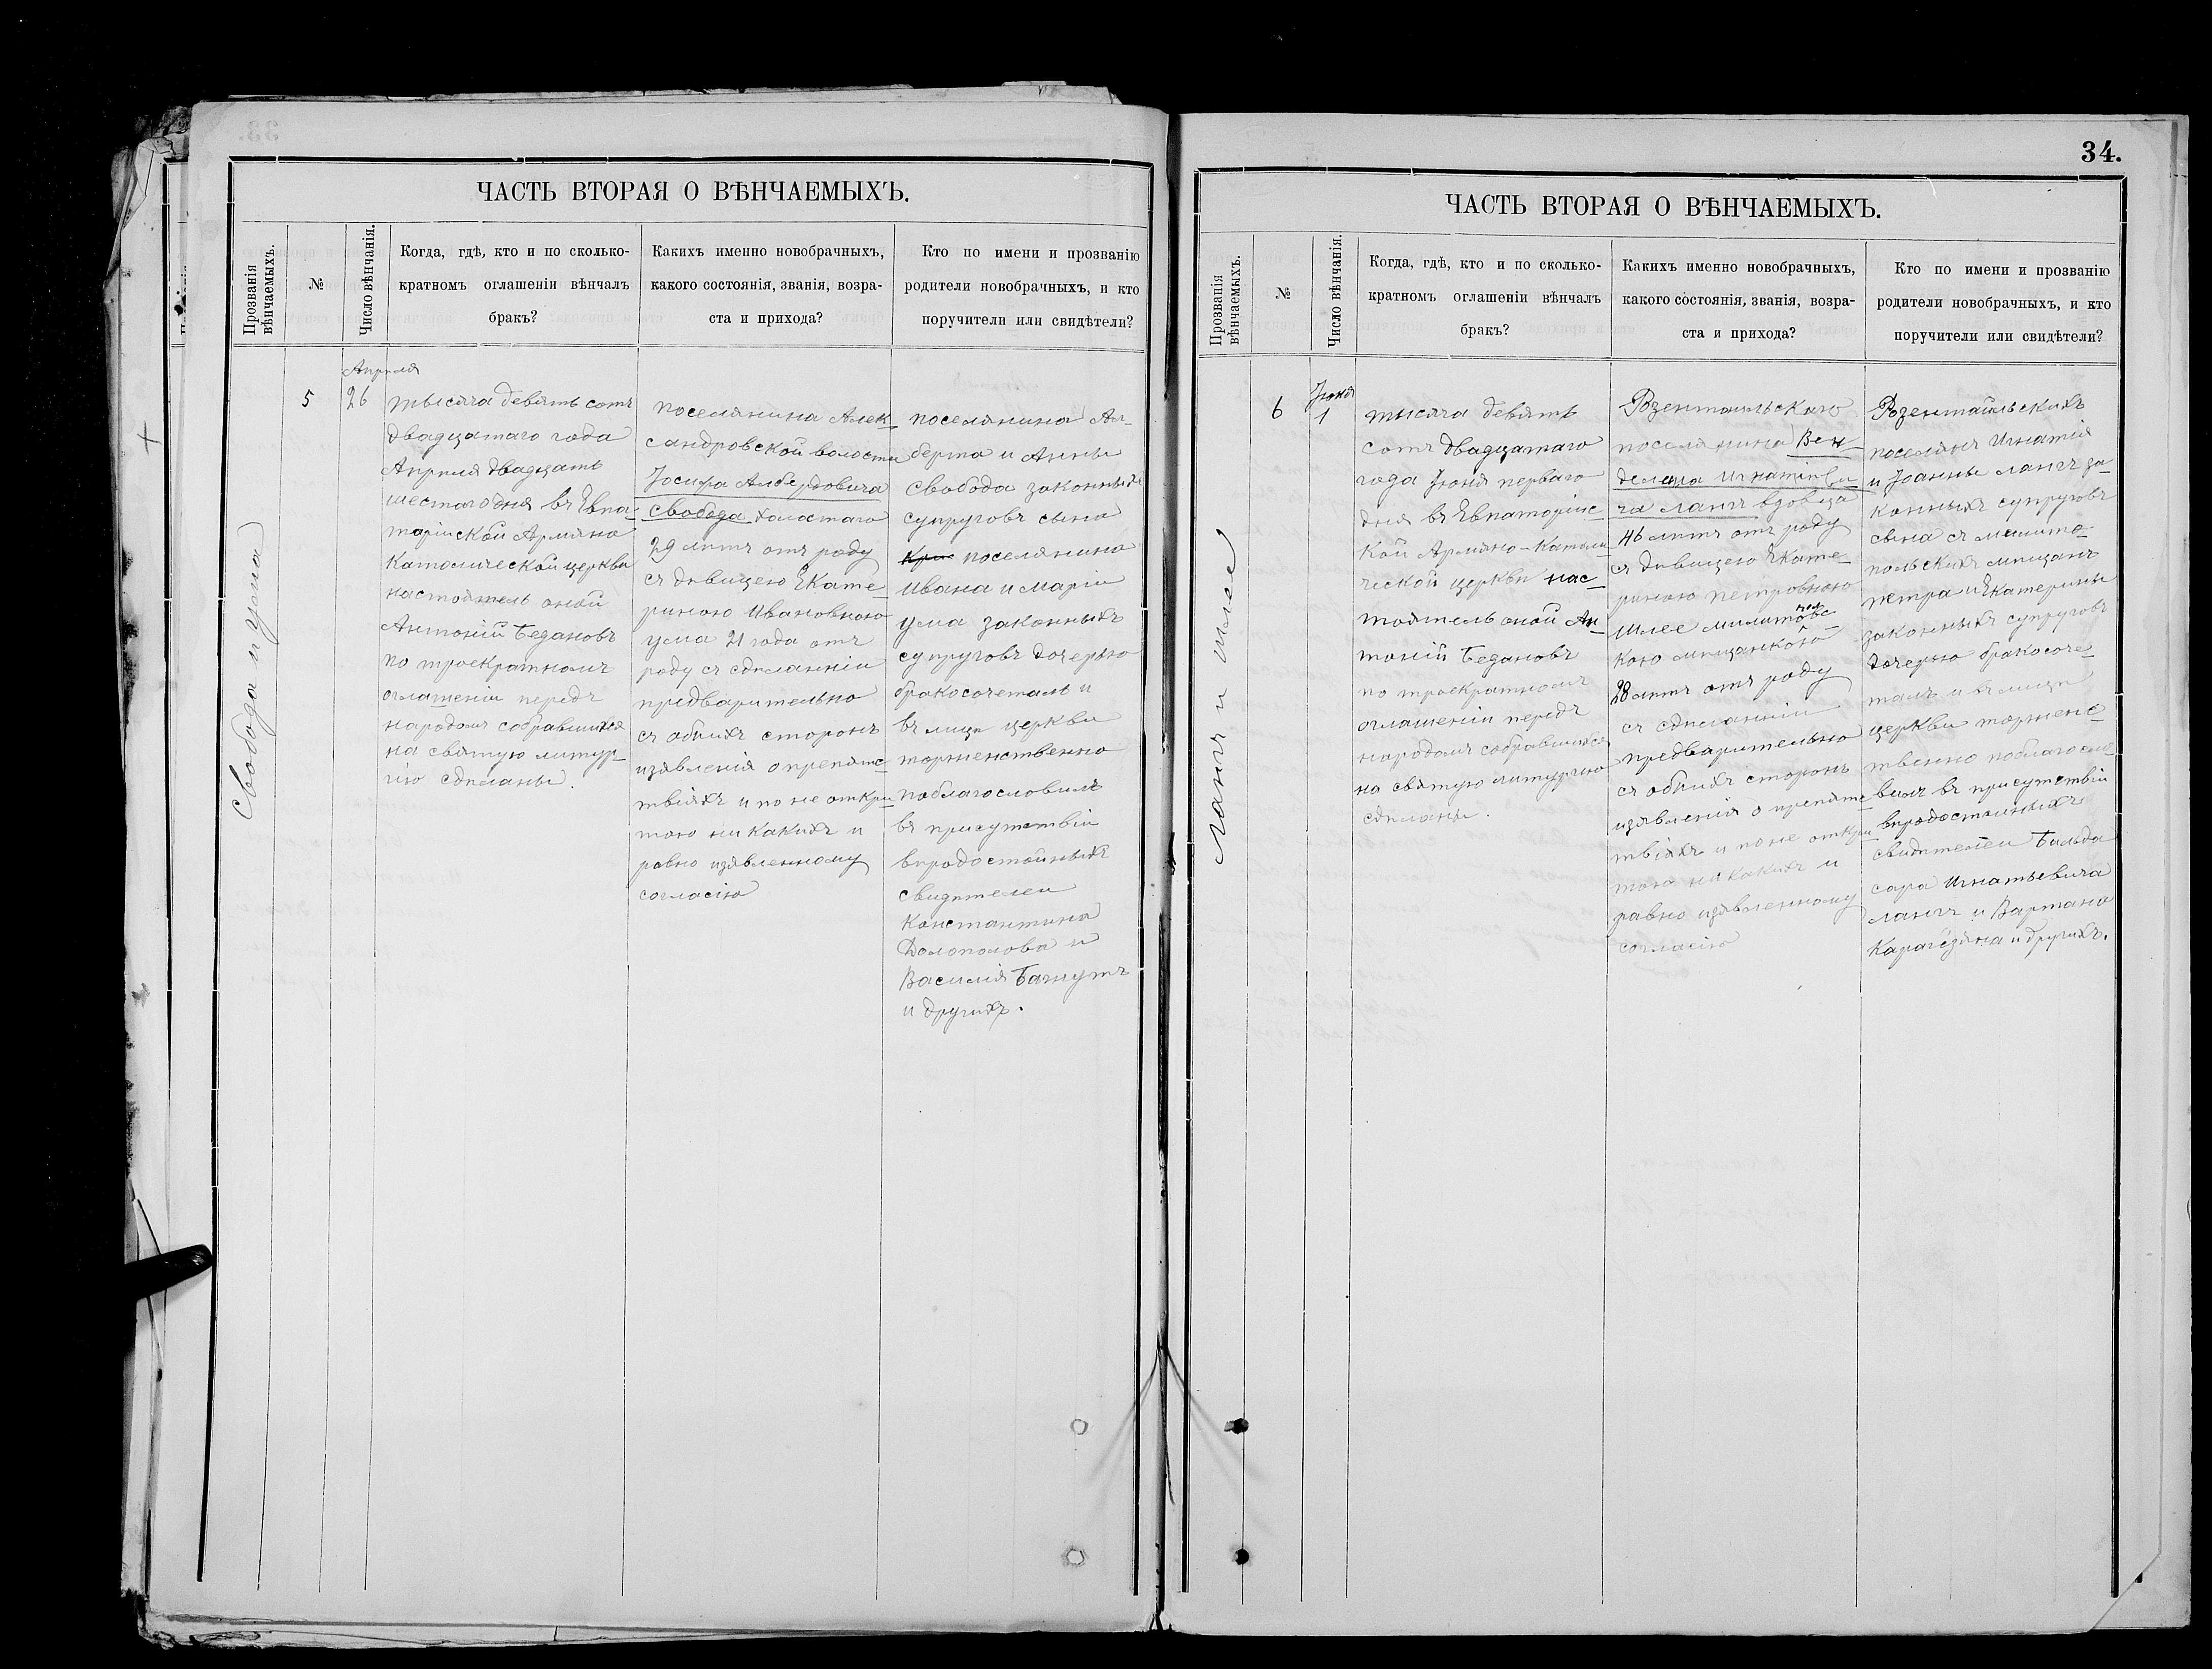 ЧАСТЬ ВТОРАЯ О ВѢНЧАЕМЫХЪ.
Прозванія вѣнчаемыхъ.
№
Число вѣнчанія.
Когда, гдѣ, кто и по сколько-
кратномъ оглашеніи вѣнчалъ
бракъ?
Какихъ именно новобрачныхъ,
какого состоянія, званія, возра-
ста и прихода?
Кто по имени и прозванію
родители новобрачныхъ, и кто
поручители или свидѣтели?
Свобода и Ума
5
Апрѣля
26
тысяча девять сотъ
двадцатаго года
Апрѣля двадцать
шестаго дня въ Евпа-
торійской Армяно
Католической церкви
настоятель оной
Антоній Бедановъ
по троекратномъ
оглашеніи передъ
народомъ собравшихся
на святую литур-
гію сдѣланы.
поселянина Алек-
сандровской волости
Іосифа Албердовича
Свобода холостаго
29 лѣтъ отъ роду
съ дѣвицею Екате-
риною Ивановною
Ума 21 года отъ
роду съ сдѣланніи
предварительно
съ обѣихъ сторонъ
изявленія о препятс-
твіяхъ и по не откри-
тою никакихъ и
равно изявленному
согласію
поселянина Ал-
берта и Анны
Свобода законныхъ
супруговъ сына
поселянина
Ивана и Маріи
Ума законныхъ
супруговъ дочерью
бракосочеталъ и
въ лицѣ церкви
торженственно
поблагословилъ
въ присутствіи
вѣродостойныхъ
свидѣтелеи
Константина
Долополова и
Василія Бачжутъ
и другихъ.
34.
ЧАСТЬ ВТОРАЯ О ВѢНЧАЕМЫХЪ.
Прозванія вѣнчаемыхъ.
№
Число вѣнчанія.
Когда, гдѣ, кто и по сколько-
кратномъ оглашеніи вѣнчалъ
бракъ?
Какихъ именно новобрачныхъ,
какого состоянія, званія, возра-
ста и прихода?
Кто по имени и прозванію
родители новобрачныхъ, и кто
поручители или свидѣтели?
Лангъ и Шлее
6
Іюня
1
тысяча девять
сотъ двадцатаго
года Іюня перваго
дня въ Евпаторійс-
кой Армяно-Католи-
ческой церкви нас-
тоятель оной Ан-
тоній Бедановъ
по троекратномъ
оглашеніи передъ
народомъ собравшихся
на святую литургію
сдѣланы.
Розентальскаго
поселянина Вен-
делина Игнатіеви-
ча Лангъ вдовца
46 лѣтъ отъ роду
съ дѣвицею Екате-
риною Петровною
Шлее Милитопольс-
кою мѣщанкой
28 лѣтъ отъ роду
съ сдѣланніи
предварительно
съ обѣихъ сторонъ
изявленія о препятс-
твіяхъ и по не откри-
тою никакихъ и
равно изявленному
согласію
Розентальскихъ
поселянъ Игнатія
и Іоанны Лангъ за-
конныхъ супруговъ
сына съ Милито-
польскихъ мѣщанъ
Петра и Екатерины
законныхъ супруговъ
дочерью бракосоче-
талъ и въ лицѣ
церкви торженс-
твенно поблагосло-
вилъ въ присутствіи
вѣродостойныхъ
свидѣтелеи Бальда
сара Игнатьевича
Лангъ и Вартана
Карагёзяна и другихъ.